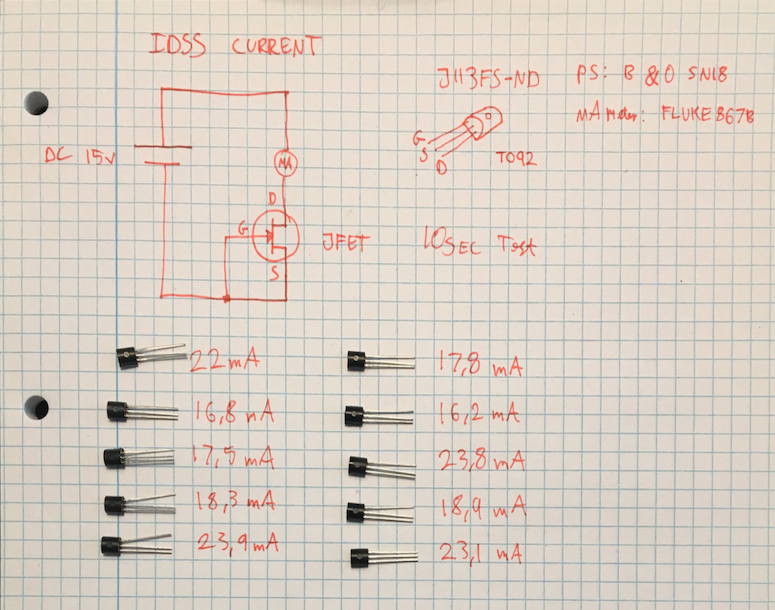 IDSS CURRENT
J113FS-ND
PS: B & O SN18
MA Meter: FLUKE 867B
DC 15V
MA
G
S
D
TO92
D
G
S
JFET
10SEC Test
22mA
16,8 mA
17,5 mA
18,3 mA
23,9mA
17,8 mA
16,2 mA
23,8 mA
18,9 mA
23,1 mA